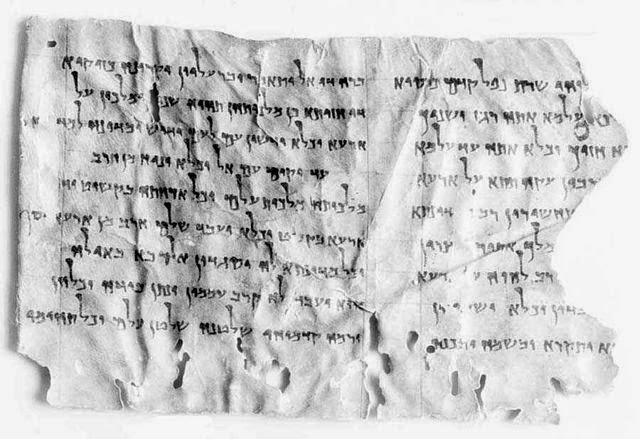 עלוהי שרת נפל קדם כרסיא
עלמא אתה רגז ושניך
חזוך וכלא אתה עד עלמא
רברבין עקה תתא על ארעא
ונחשירון רב
מלך אתור
רב להוה על ארעא
יעבדון וכלא
יתקרא ובשמה יתכנה
ברה די אל יתאמר ובר עליון יקרונה כזיקיא
די חזותא כן מלכותהן תהוה שנין ימלכון על
ארעא וכלא ידשון עם לעם ידוש ומדינה
עד יקום עם אל וכלא יניח מן חרב
מלכותה מלכות עלם וכל ארחתה בקשוט
ארעא בקשט וכלא יעבד שלם חרב מן ארעא יסף
וכל מדינתא לה יסגדון אל רבא באילה
הוא ויעבד לה קרב עממין ינתן בידה וכלהן
ירמה קדמוהי שלטנה שלטן עלם וכל תהומי